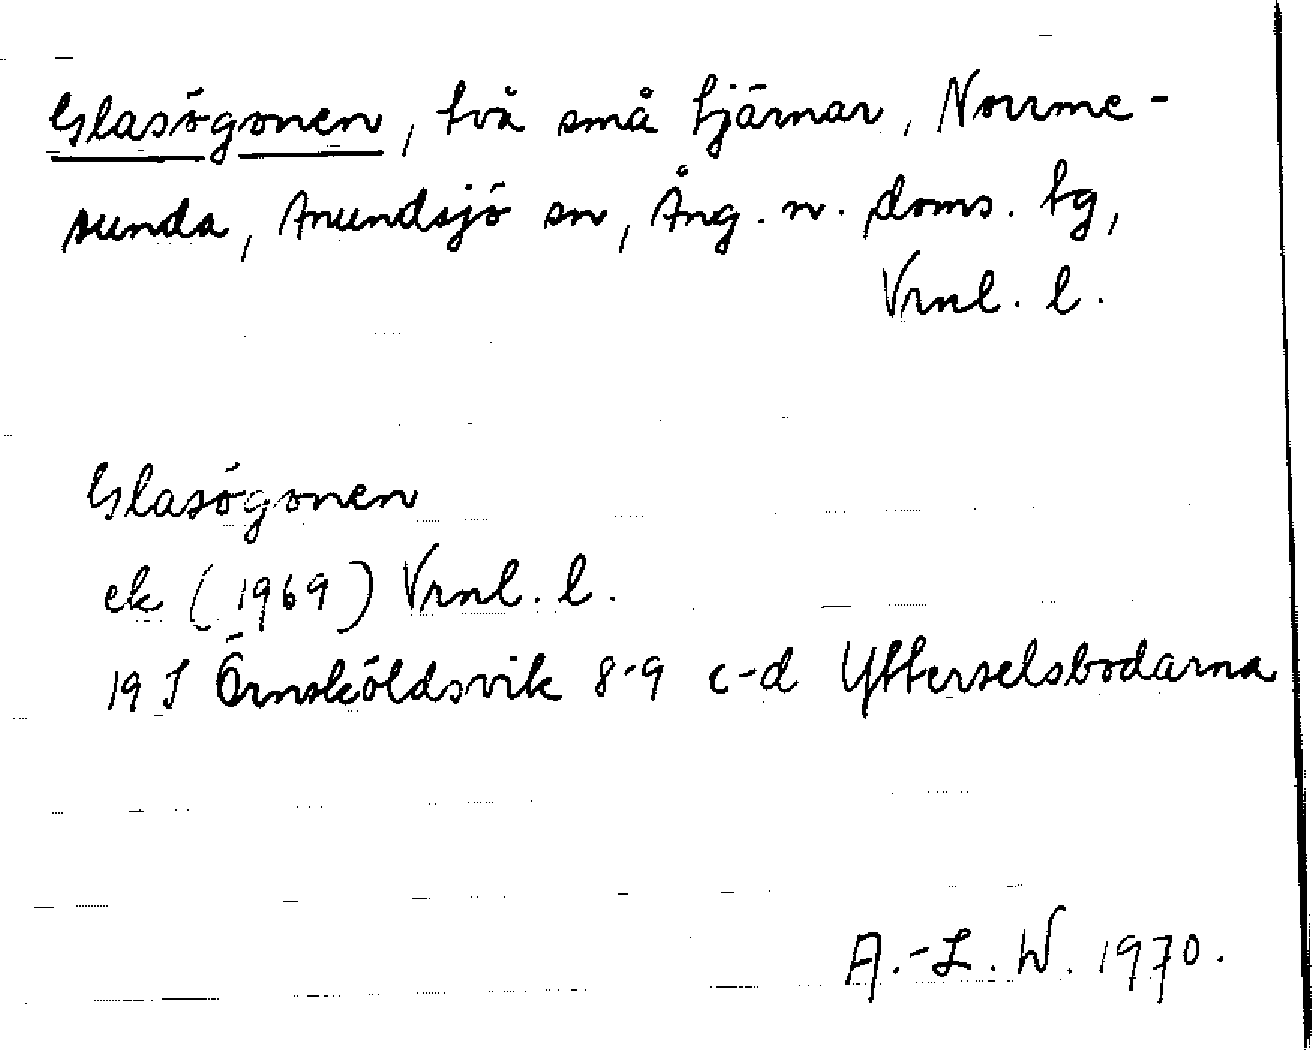 Glasögonen, två små tjärnar, Norrme-
sunda, Anundsjö sn, Ång. n. doms. tg,
Vrnl. l.
Glasögonen
ek (1969) Vrnl. l.
19 I Örnsköldsvik 8-9 c-d Ytterselsbodarna
A.-L. W. 1970.